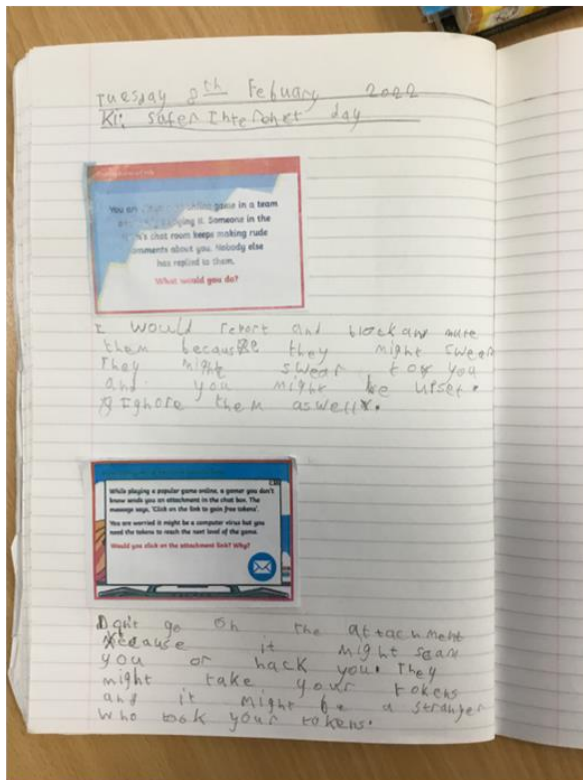 Tuesday 8th Febuary 2022
Ki: Safer Internet day
You are online game in a team
Someone in the
chat room keeps making rude
comments about you. Nobody else
has replied to them.
What would you do?
I would report and block and mute
them because they might swear
They might swear to you
and you might be upset.
Ignore them aswell.
While playing a popular game online, a gamer you don't
know sends you an attachment in the chat box. The
message says, 'Click on the link to gain free tokens'.
You are worried it might be a computer virus but you
need the tokens to reach the next level of the game.
Would you click on the attachment link? Why?
Don't go on the attachment
because it might scam
you or hack you. They
might take your tokens
and it might be a stranger
who took your tokens.